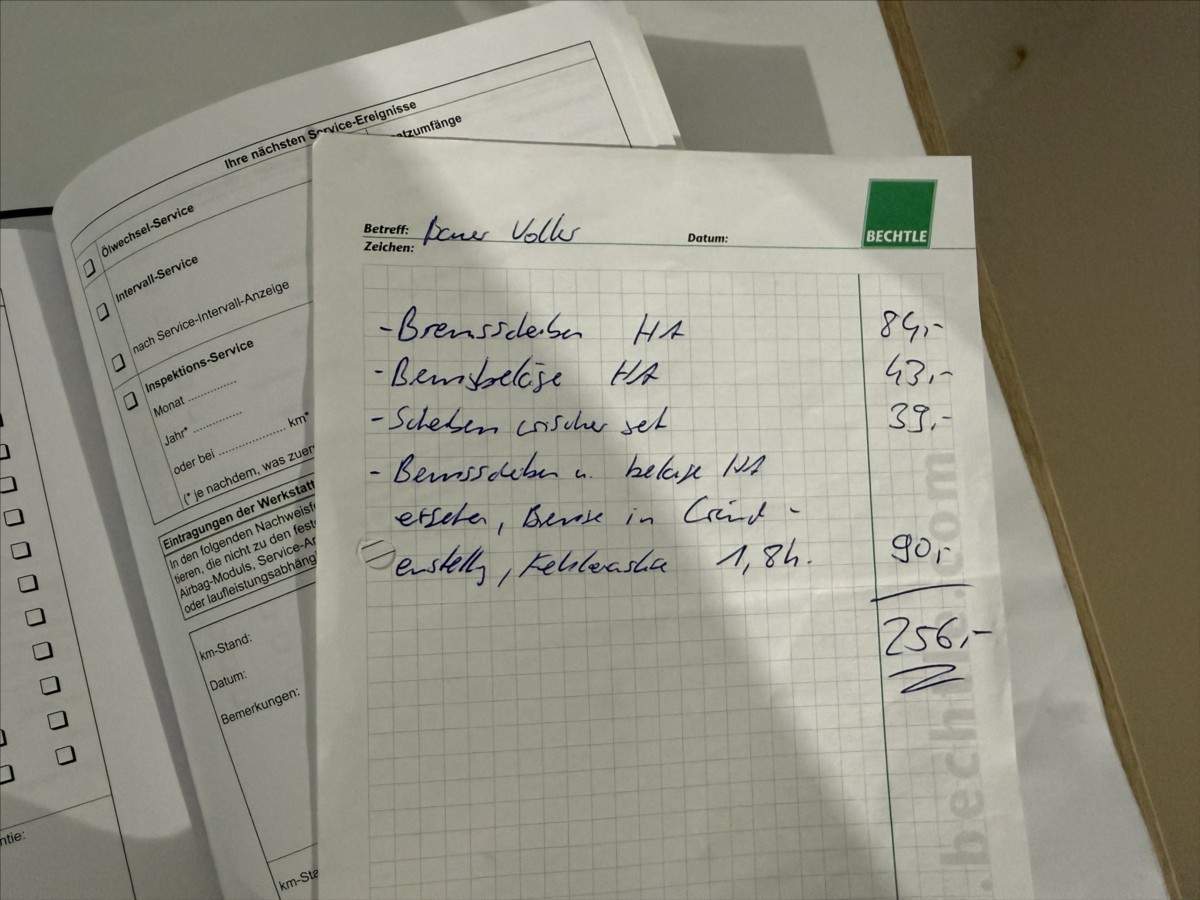 Ihre nächsten Service-Ereignisse
atzumfänge
Ölwechsel-Service
Intervall-Service
nach Service-Intervall-Anzeige
Inspektions-Service
Monat ..............
Jahr* ..............
oder bei .................... km*
(* je nachdem, was zuer
Eintragungen der Werkstatt
In den folgenden Nachweisf
tieren, die nicht zu den fest
Airbag-Moduls, Service-Ar
oder laufleistungsabhäng
km-Stand:
Datum:
Bemerkungen:
km-Sta
ntie:
Betreff: Volker
Zeichen:
Datum:
BECHTLE
- Bremsscheiben HA 84,-
- Bremsbeläge HA 43,-
- Scheiben wischer set 39,-
- Bremsscheiben u. beläge HA
ersetzen, Bremse in Grund -
einstellg, 1,8h. 90,-
256,-
.bechtle.com